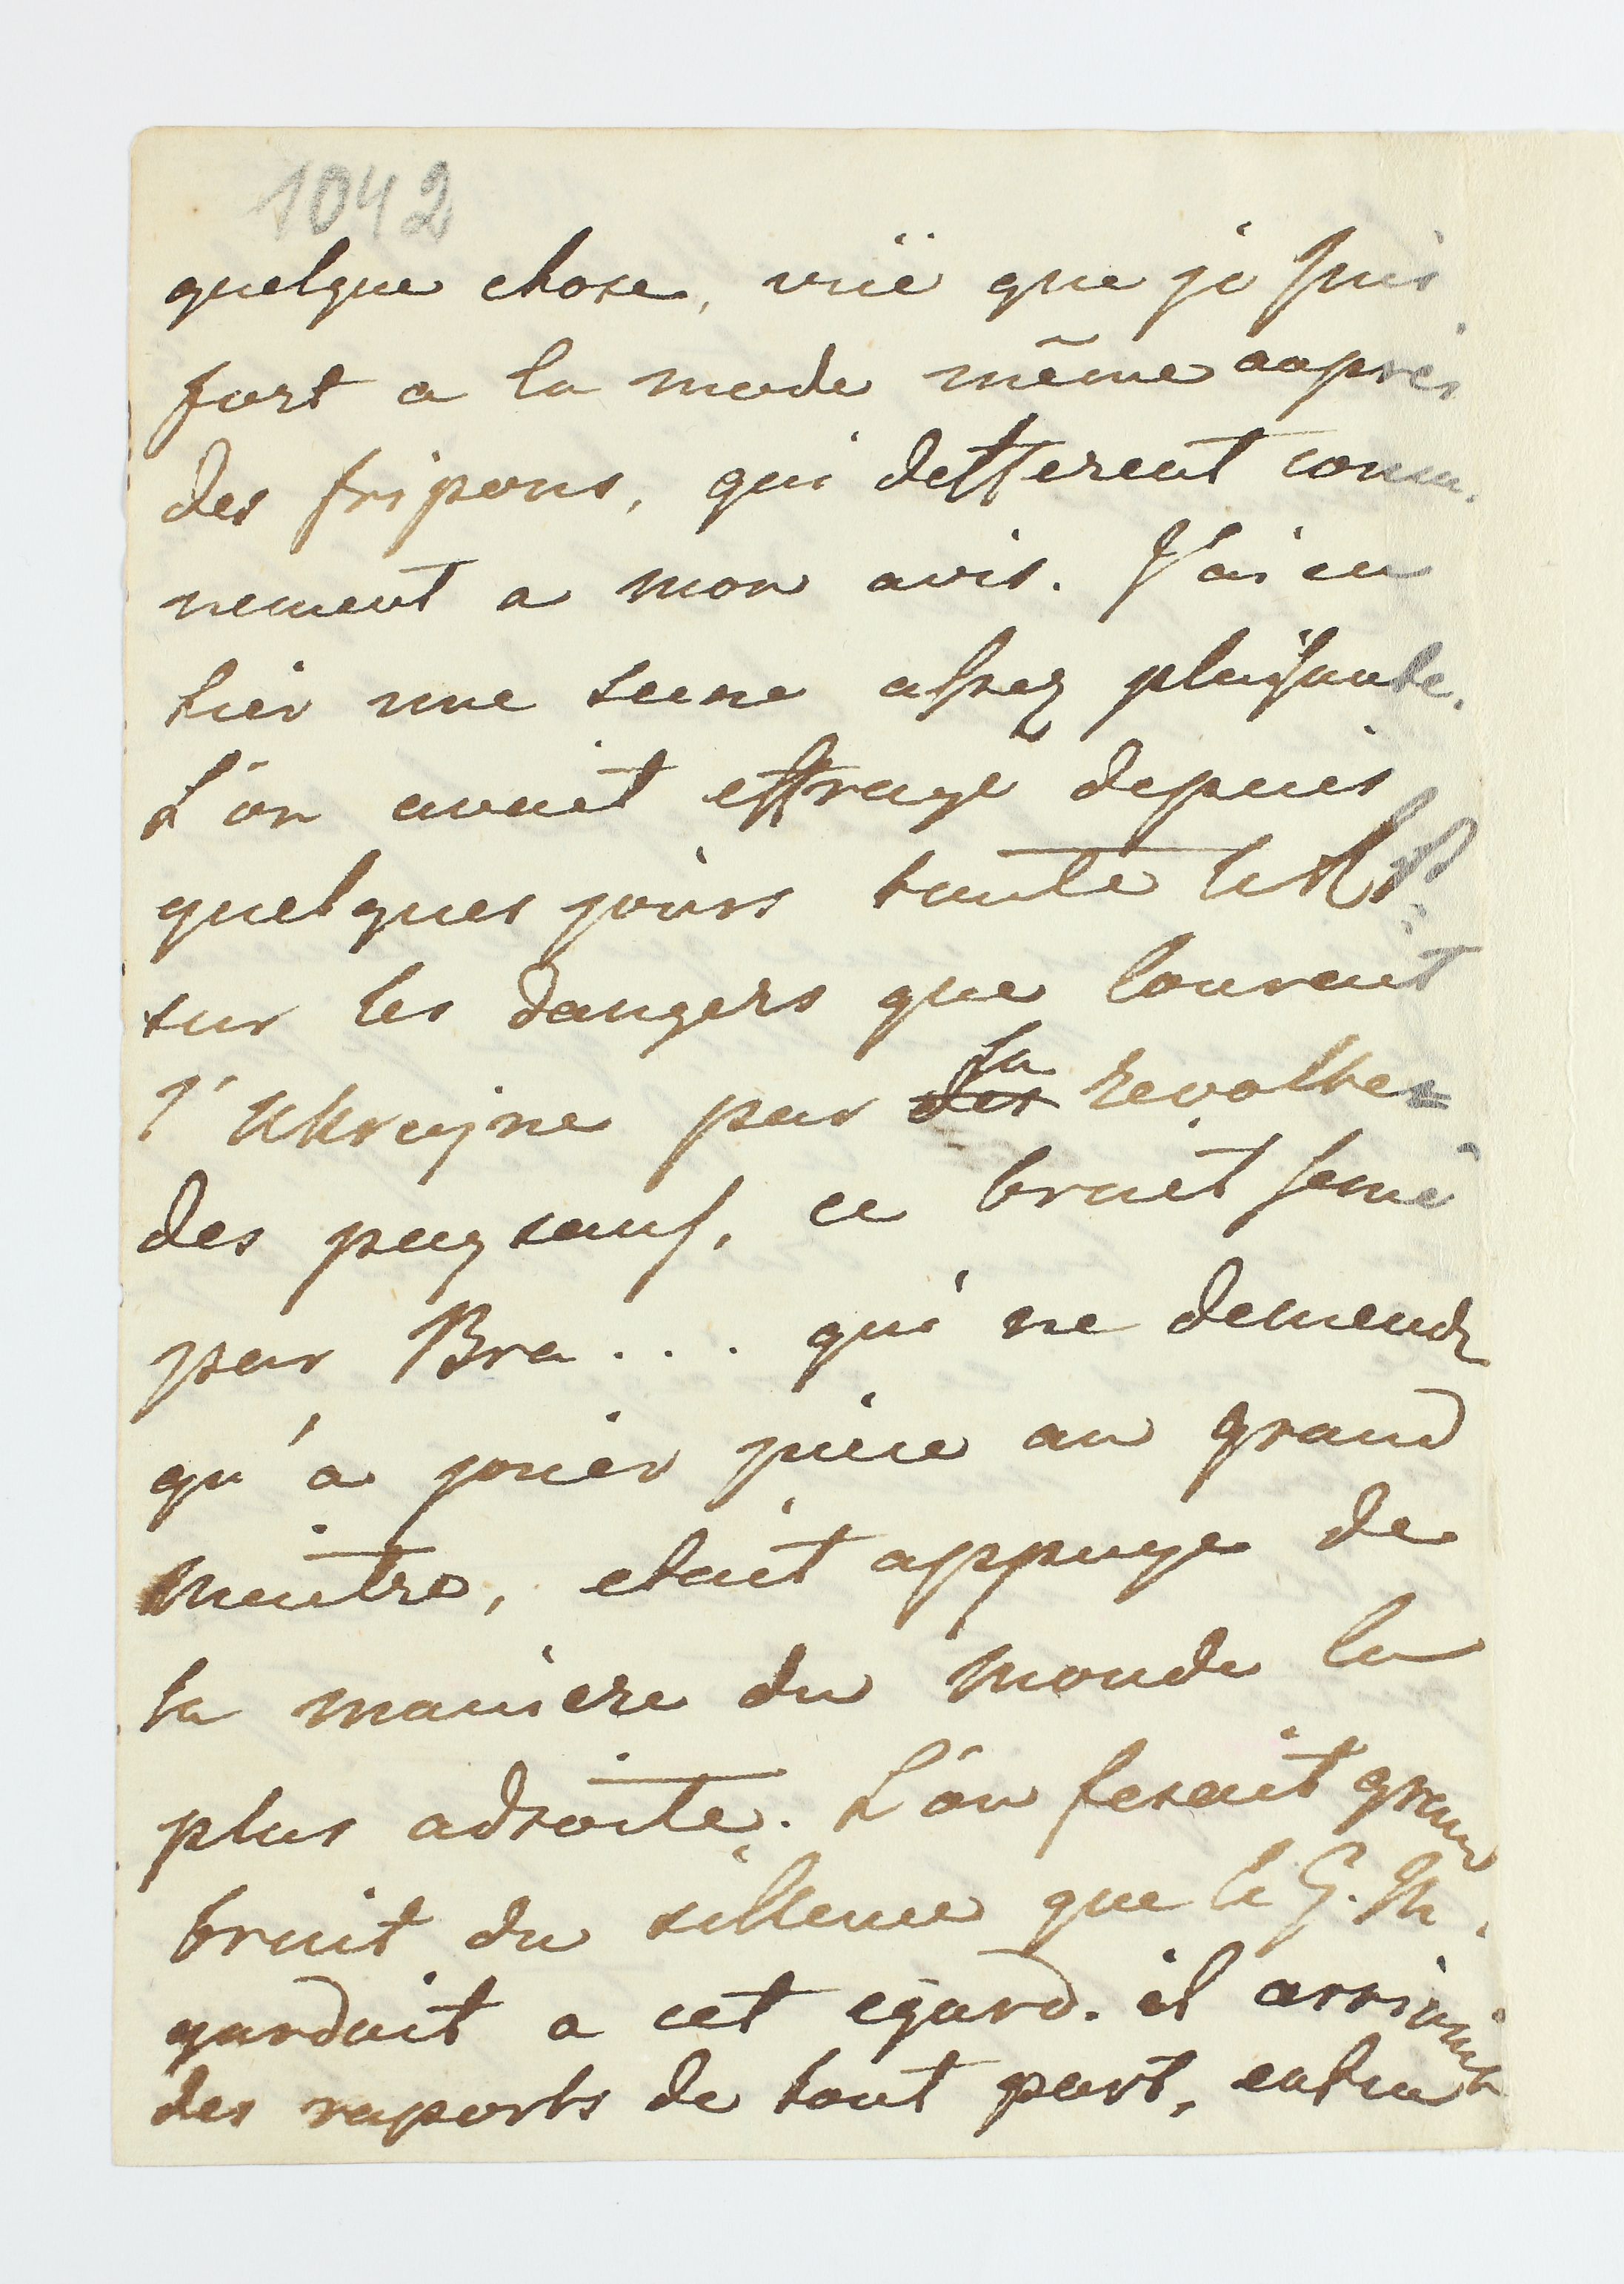 1042
quelque chose, vüe que je suis
fort a la mode même aupres
des fripons, qui defferent comu-
nement a mon avis. J'ai eu
hier une scene assez plaisante.
L'on avait effraye depuis
quelques jours toute la
sur les dangers que courait
l'Ukrajne par des la revolte
des paysans, ce bruit semé
par Bra... qui ne demende
qu'a jouer piece au grand
maitre, etait appuye de
la maniere du monde la
plus adroite. L'on fesait grand
bruit du sillence que le G. M.
gardait a cet egard. il arrivait
des raports de tout part,